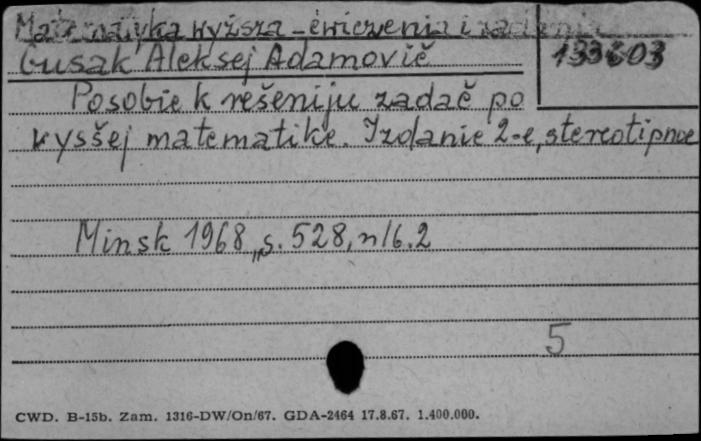 Matematyka wyższa - ćwiczenia i zadania
Gusak Aleksej Adamovič
133603
Posobie k rešeniju zadač po
vysšej matematike. Izdanie 2-e, stereotipnoe
Minsk 1968, s. 528, nlb. 2
5
CWD. B-15b. Zam. 1316-DW/On/67. GDA-2464 17.8.67. 1.400.000.